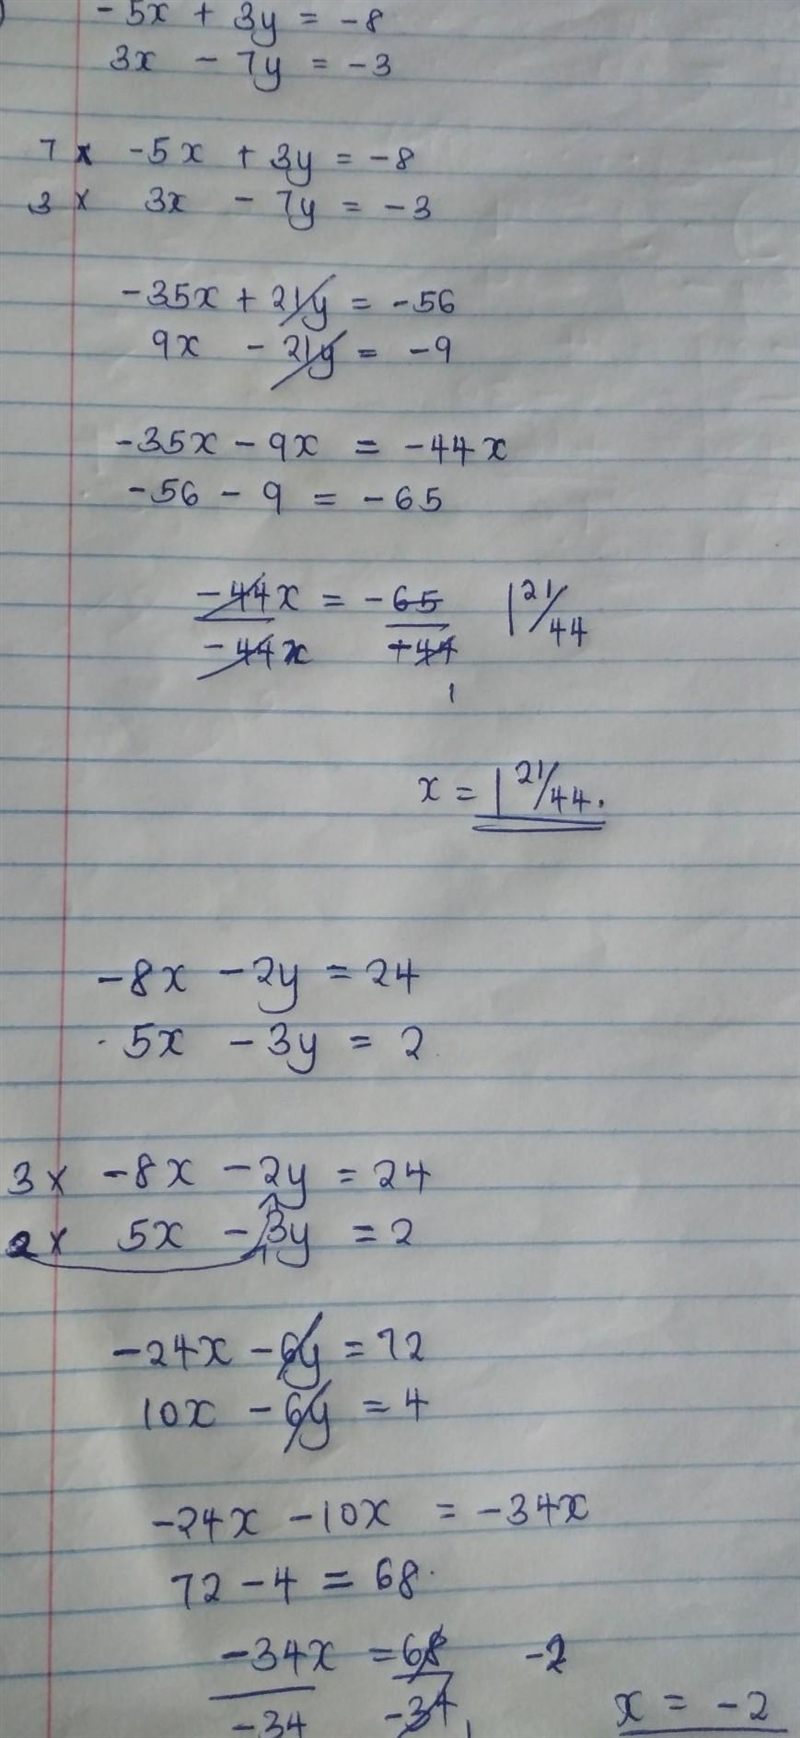 - 5x + 3y = -8
3x - 7y = -3
7 x -5x + 3y = -8
3 x 3x - 7y = -3
-35x + 21y = -56
9x - 21y = -9
-35x - 9x = -44x
-56 - 9 = -65
-44x = -65 1 21/44
-44x +44
1
x = 1 21/44.
-8x - 2y = 24
5x - 3y = 2
3 x -8x - 2y = 24
2 x 5x - 3y = 2
-24x - 6y = 72
10x - 6y = 4
-24x - 10x = -34x
72 - 4 = 68.
-34x = 68 -2
-34 -34 1
x = -2